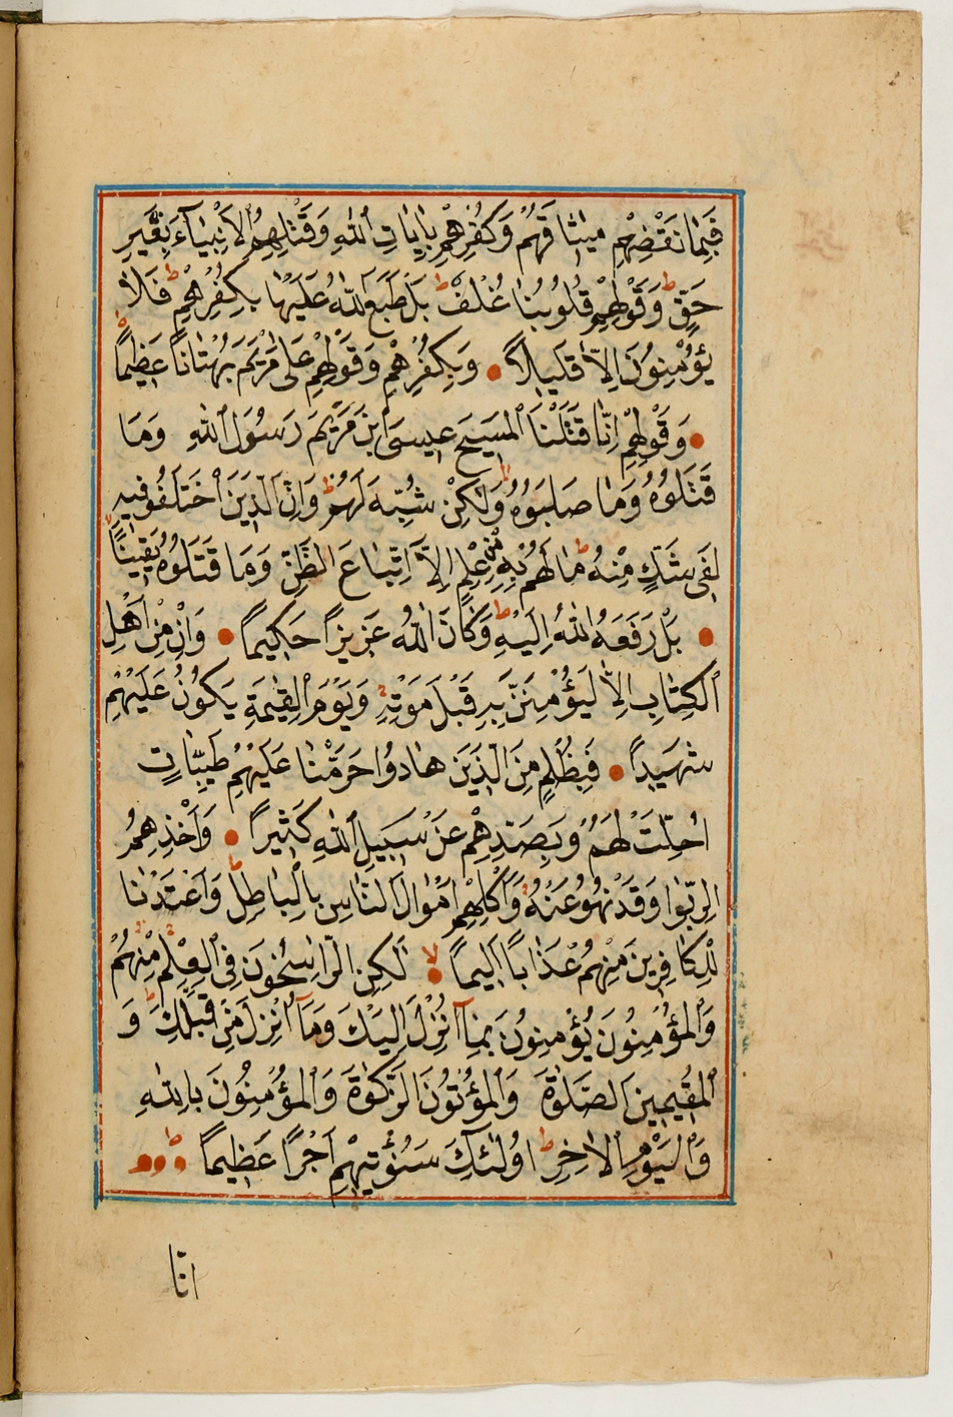 فَبِمَا نَقْضِهِمْ مِيثَاقَهُمْ وَكُفْرِهِمْ بِاٰيَاتِ اللّٰهِ وَقَتْلِهِمُ الْاَنْبِيَآءَ بِغَيْرِ
حَقٍّ ط وَقَوْلِهِمْ قُلُوبُنَا غُلْفٌ ط بَلْ طَبَعَ اللّٰهُ عَلَيْهَا بِكُفْرِهِمْ ط فَلَا
يُؤْمِنُونَ اِلَّا قَلِيلًا وَبِكُفْرِهِمْ وَقَوْلِهِمْ عَلٰى مَرْيَمَ بُهْتَانًا عَظِيمًا
وَقَوْلِهِمْ اِنَّا قَتَلْنَا الْمَسِيحَ عِيسَى ابْنَ مَرْيَمَ رَسُولَ اللّٰهِ وَمَا
قَتَلُوهُ وَمَا صَلَبُوهُ وَلٰكِنْ شُبِّهَ لَهُمْ ط وَاِنَّ الَّذِينَ اخْتَلَفُوا فِيهِ
لَفِى شَكٍّ مِنْهُ ط مَا لَهُمْ بِهِ مِنْ عِلْمٍ اِلَّا اتِّبَاعَ الظَّنِّ وَمَا قَتَلُوهُ يَقِينًا
بَلْ رَفَعَهُ اللّٰهُ اِلَيْهِ ط وَكَانَ اللّٰهُ عَزِيزًا حَكِيمًا وَاِنْ مِنْ اَهْلِ
الْكِتَابِ اِلَّا لَيُؤْمِنَنَّ بِهِ قَبْلَ مَوْتِهِ وَيَوْمَ الْقِيٰمَةِ يَكُونُ عَلَيْهِمْ
شَهِيدًا فَبِظُلْمٍ مِنَ الَّذِينَ هَادُوا حَرَّمْنَا عَلَيْهِمْ طَيِّبَاتٍ
اُحِلَّتْ لَهُمْ وَبِصَدِّهِمْ عَنْ سَبِيلِ اللّٰهِ كَثِيرًا وَاَخْذِهِمُ
الرِّبٰوا وَقَدْ نُهُوا عَنْهُ وَاَكْلِهِمْ اَمْوَالَ النَّاسِ بِالْبَاطِلِ ط وَاَعْتَدْنَا
لِلْكَافِرِينَ مِنْهُمْ عَذَابًا اَلِيمًا لا لٰكِنِ الرَّاسِخُونَ فِى الْعِلْمِ مِنْهُمْ
وَالْمُؤْمِنُونَ يُؤْمِنُونَ بِمَآ اُنْزِلَ اِلَيْكَ وَمَآ اُنْزِلَ مِنْ قَبْلِكَ ط وَ
الْمُقِيمِينَ الصَّلٰوةَ وَالْمُؤْتُونَ الزَّكٰوةَ وَالْمُؤْمِنُونَ بِاللّٰهِ
وَالْيَوْمِ الْاٰخِرِ ط اُولٰئِكَ سَنُؤْتِيهِمْ اَجْرًا عَظِيمًا ط
انا